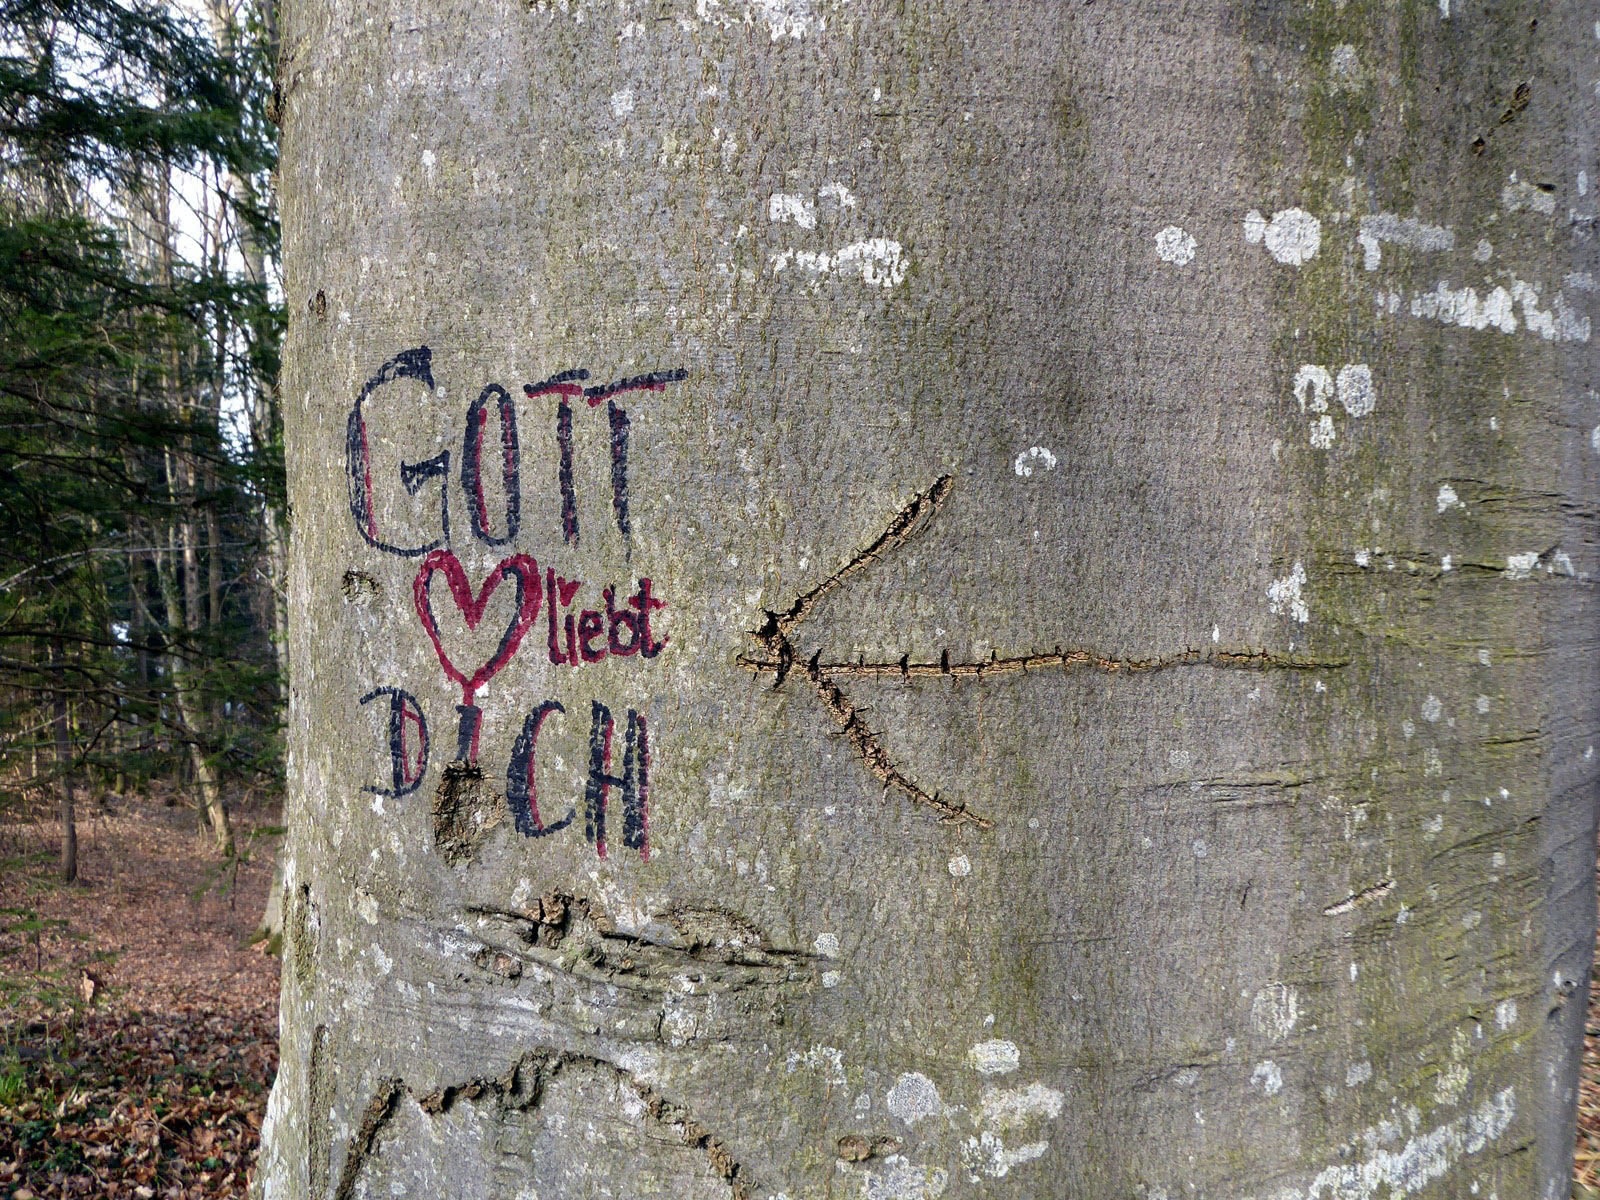 GOTT
liebt
DiCH